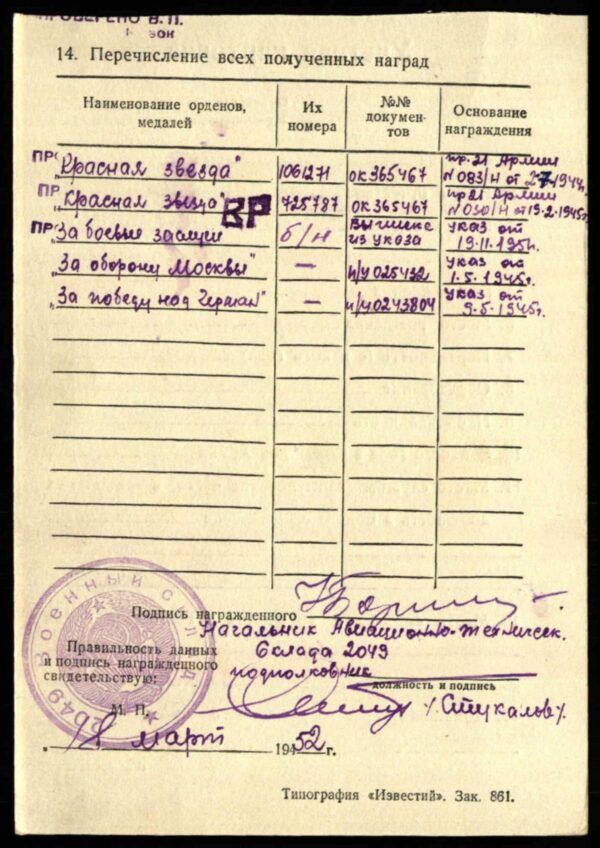 ПРОВЕРЕНО В. П.
14. Перечисление всех полученных наград
Наименование орденов, медалей
Их номера
№№ документов
Основание награждения
ПР „Красная звезда" 1061271 ОК 365467 Пр. 21 Армии N 083/Н от 1944г.
ПР „Красная звезда" ВР 725787 ОК 365467 Пр 21 Армии N 030/Н от 19.2.1945г.
ПР „За боевые заслуги б/н из указа Указ от 19.11.1951г.
„За оборону Москвы" — 025432 Указ от 1.5.1945г.
„За победу над Герман" — 0243804 Указ от 9.5.1945г.
Подпись награжденного
Начальник Авиационно-Техническ.
Правильность данных Склада 2049
и подпись награжденного подполковник
свидетельствую: должность и подпись
М. П. /Стукалов/
„18 март 1952 г.
Военный склад 2049
Типография «Известий». Зак. 861.